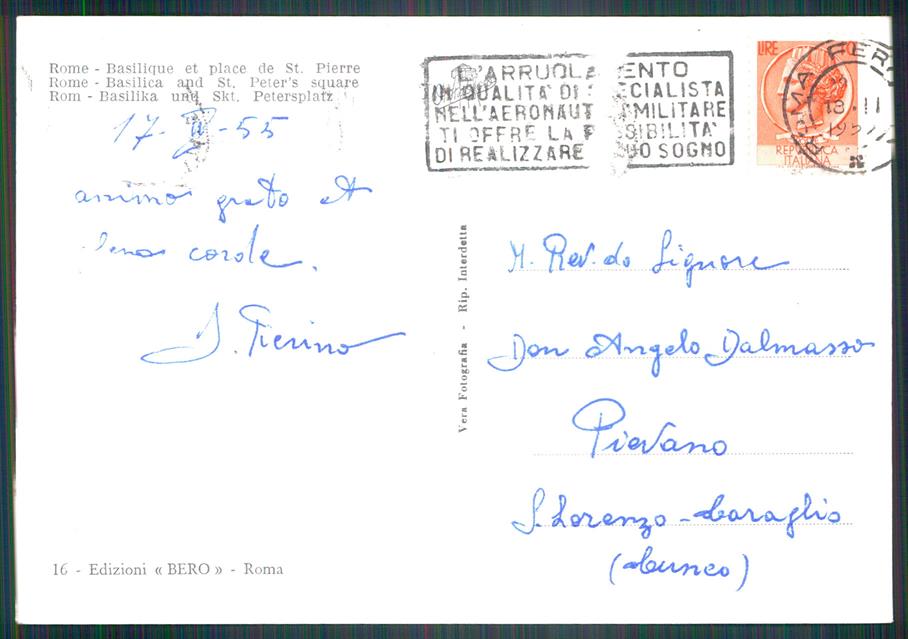 Rome - Basilique et place de St. Pierre
Rome - Basilica and St. Peter's square
Rom - Basilika und Skt. Petersplatz
17-II-55
animo grato et
corde.
D. Pierino
16 - Edizioni « BERO » - Roma
Vera Fotografia - Rip. Interdetta
L'ARRUOLA ENTO
IN QUALITA' DI S ECIALISTA
NELL'AERONAUT MILITARE
TI OFFRE LA P SSIBILITA'
DI REALIZZARE UO SOGNO
LIRE
REPUBBLICA
ITALIANA
ROMA FERR
M. Rev.do Signore
Don Angelo Dalmasso
Pievano
S. Lorenzo - Caraglio
(Cuneo)